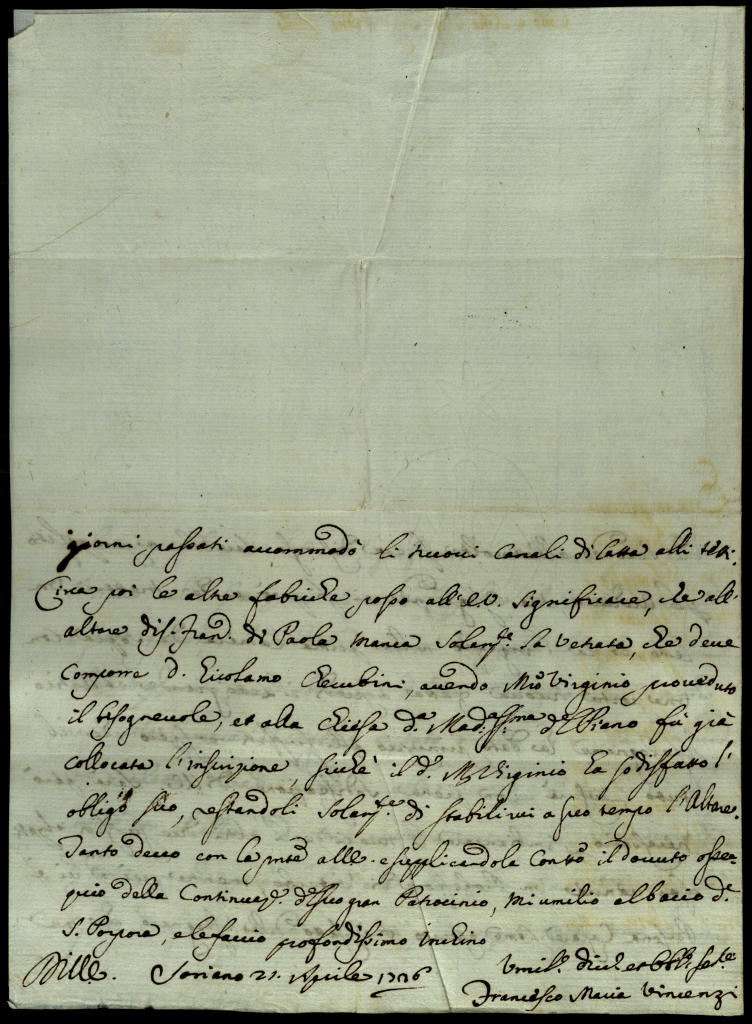 giorni passati accommodò li nuovi Canali di latta alli tetti.
Circa poi le altre fabriche posso all'E.V. significare, che all'
altare di S. Fran.o di Paola manca solam.te la vetrata, che deve
comporre d. Girolamo Cherubini, avendo M.o Virginio proveduto
il bisognevole, et alla Chiesa d.a Mad.a SSma dell Piano fù già
collocata l'inscrizione, sicchè il d.o M.o Virginio ha sodisfatto l'
obligo suo, restandoli solam.te di stabilirvi a suo tempo l'Altare.
Tanto devo con la pnte all E. e supplicandola con tto il dovuto osse-
quio della Continuaz.e del suo gran Patrocinio, mi umilio al bacio d.a
S. Porpora, e le faccio profondissimo inchino
Di V.E. Soriano 21 Aprile 1736
Umil.o div.o et obb.o ser.re
Francesco Maria Vincenzi